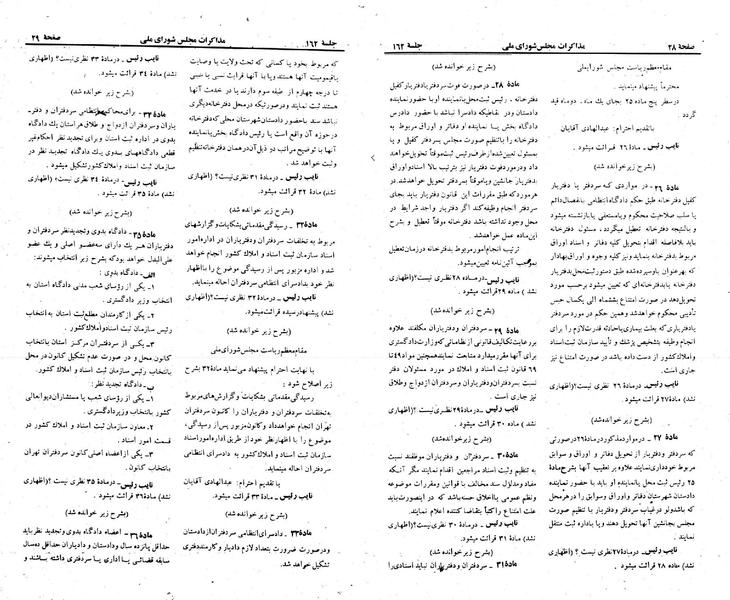 صفحه ۲۸
مذاکرات مجلس شورای ملی
جلسه ۱۶۲
مقام معظم ریاست مجلس شورایملی
محترماً پیشنهاد مینماید.
در سطر پنج ماده ۲۵ بجای یک ماه، دوماه قید
گردد.
با تقدیم احترام: عبدالهادی آقایان
نایب رئیس - ماده ۲۶ قرائت میشود.
(بشرح زیر خوانده شد)
ماده ۲۶ - در مواردی که سردفتر یا دفتریار
کفیل دفترخانه طبق حکم دادگاه انتظامی بانفصال دائم
یا سلب صلاحیت محکوم و یا مستعفی یا بازنشسته میشود
و بالنتیجه دفترخانه تعطیل میگردد، مسئول دفترخانه
باید بلافاصله اقدام بتحویل کلیه دفاتر و اسناد و اوراق
مربوط به دفترخانه بنماید و نیز کلیه وجوه و اوراق بهادار
که بعنوان باو سپرده شده طبق دستور ثبت محل بدفتریار
دفترخانه یا بدفترخانه‌ای که تعیین میشود برحسب مورد
تحویل دهد در صورت امتناع بشش ماه الی یکسال حبس
تأدیبی محکوم خواهد شد و همین حکم در مورد سردفتر
یا دفتریاری که بعلت بیماری یا حادثه قدرت لازم را برای
انجام وظیفه بتشخیص پزشک و تأیید سازمان ثبت اسناد
و املاک کشور از دست داده باشد در صورت امتناع نیز
جاری است.
نایب رئیس - در ماده ۲۶ نظری نیست؟ (اظهاری
نشد) ماده ۲۷ قرائت میشود.
(بشرح زیر خوانده شد)
ماده ۲۷ - در موارد مذکور در ماده ۲۶ در صورتی
که سردفتر و دفتریار از تحویل دفاتر و اوراق و سوابق
مربوط خودداری نمایند علاوه بر تعقیب آنها بشرح ماده
۲۵ رئیس ثبت محل یا نماینده او باید با حضور نماینده
دادستان شهرستان دفاتر و اوراق و سوابق را در هر محل
که باشد ولو در غیاب سردفتر و دفتریار با تنظیم صورت
مجلس بجانشین آنها تحویل دهند و یا به اداره ثبت منتقل
نمایند.
نایب رئیس - در ماده ۲۷ نظری نیست؟ (اظهاری
نشد) ماده ۲۸ قرائت میشود.
(بشرح زیر خوانده شد)
ماده ۲۸ - در صورت فوت سردفتر یا دفتریار کفیل
دفترخانه، رئیس ثبت محل یا نماینده او با حضور نماینده
دادستان و در نقاطیکه دادسرا نباشد با حضور دادرس
دادگاه بخش یا نماینده او دفاتر و اوراق مربوط به
دفترخانه را با تنظیم صورت مجلس بدفتریار کفیل و یا
بمسئول تعیین شده از طرف رئیس ثبت موقتاً تحویل خواهند
داد و در مورد فوت دفتریار نیز بترتیب بالا اسناد و اوراق
بدفتریار جانشین و یا موقتاً بسردفتر تحویل خواهد شد. در
هر مورد که طبق مقررات این قانون دفتریار باید بجای
سردفتر انجام وظیفه کند اگر دفتریار واجد شرایط در
محل وجود نداشته باشد دفترخانه موقتاً تعطیل و بشرح
این ماده عمل خواهد شد.
ترتیب انجام امور مربوط بدفترخانه در زمان تعطیل
بموجب آئین‌نامه تعیین میشود.
نایب رئیس - در ماده ۲۸ نظری نیست؟ (اظهاری نشد
) ماده ۲۹ قرائت میشود.
(بشرح زیر خوانده شد)
ماده ۲۹ - سردفتران و دفتریاران مکلفند علاوه
بر رعایت تکالیف قانونی از نظامات که وزارت دادگستری
برای آنها مقرر میدارد متابعت نمایند همچنین مواد ۴۹ تا
۶۹ قانون ثبت اسناد و املاک در مورد مسئولان دفتر
نسبت بسردفتران و دفتریاران و سردفتران ازدواج و طلاق
نیز جاری است.
نایب رئیس - در ماده ۲۹ نظری نیست؟ (اظهاری
نشد) ماده ۳۰ قرائت میشود.
(بشرح زیر خوانده شد)
ماده ۳۰ - سردفتران و دفتریاران موظفند نسبت
به تنظیم و ثبت اسناد مراجعین اقدام نمایند مگر آنکه
مفاد و مدلول سند مخالف با قوانین و مقررات موضوعه
و نظم عمومی یا اخلاق حسنه باشد که در اینصورت باید
علت امتناع را کتباً بتقاضا کننده اعلام نمایند.
نایب رئیس - در ماده ۳۰ نظری نیست؟ (اظهاری
نشد) ماده ۳۱ قرائت میشود.
(بشرح زیر خوانده شد)
ماده ۳۱ - سردفتران و دفتریاران نباید اسنادی را
جلسه ۱۶۲
مذاکرات مجلس شورای ملی
صفحه ۲۹
که مربوط بخود یا کسانی که تحت ولایت یا وصایت
یا قیمومیت آنها هستند و یا با آنها قرابت نسبی یا سببی
تا درجه چهارم از طبقه سوم دارند یا در خدمت آنها
هستند ثبت نمایند و در صورتیکه در محل دفترخانه دیگری
نباشد سند با حضور دادستان شهرستان محلی که دفترخانه
در حوزه آن واقع است یا رئیس دادگاه بخش یا نماینده
آنها با توضیح مراتب در ذیل آن در همان دفترخانه تنظیم
و ثبت خواهد شد.
نایب رئیس - در ماده ۳۱ نظری نیست؟ (اظهاری
نشد) ماده ۳۲ قرائت میشود.
(بشرح زیر خوانده شد)
ماده ۳۲ - رسیدگی مقدماتی بشکایات و گزارشهای
مربوط به تخلفات سردفتران و دفتریاران در اداره امور
اسناد سازمان ثبت اسناد و املاک کشور انجام خواهد
شد و اداره مزبور پس از رسیدگی موضوع را با اظهار
نظر خود بدادسرای انتظامی سردفتران احاله مینماید.
نایب رئیس - در ماده ۳۲ نظری نیست؟ (اظهاری
نشد) پیشنهاد رسیده قرائت میشود.
(بشرح زیر خوانده شد)
مقام معظم ریاست مجلس شورای ملی
با نهایت احترام پیشنهاد می نماید ماده ۳۲ بشرح
زیر اصلاح شود:
رسیدگی مقدماتی بشکایات و گزارش‌های مربوط
به تخلفات سردفتران و دفتریاران را کانون سردفتران
تهران انجام خواهد داد و کانون مزبور پس از رسیدگی،
موضوع را با اظهارنظر خود از طریق اداره امور اسناد
سازمان ثبت اسناد و املاک کشور به دادسرای انتظامی
سردفتران احاله مینماید.
با تقدیم احترام: عبدالهادی آقایان
نایب رئیس - ماده ۳۳ قرائت میشود.
(بشرح زیر خوانده شد)
ماده ۳۳ - دادسرای انتظامی سردفتران از دادستان
و در صورت ضرورت بتعداد لازم دادیار و کارمند دفتری
تشکیل خواهد شد.
نایب رئیس - در ماده ۳۳ نظری نیست؟ (اظهاری
نشد) ماده ۳۴ قرائت میشود.
(بشرح زیر خوانده شد)
ماده ۳۴ - برای محاکمه انتظامی سردفتران و دفتر-
یاران و سردفتران ازدواج و طلاق هر استان یک دادگاه
بدوی در اداره ثبت استان و برای تجدید نظر احکام غیر
قطعی دادگاههای بدوی یک دادگاه تجدید نظر در
سازمان ثبت اسناد و املاک کشور تشکیل میشود.
نایب رئیس - در ماده ۳۴ نظری نیست؟ (اظهاری
نشد) ماده ۳۵ قرائت میشود.
(بشرح زیر خوانده شد)
ماده ۳۵ - دادگاه بدوی و تجدید نظر سردفتران و
دفتریاران هر یک دارای سه عضو اصلی و یک عضو
علی‌البدل خواهد بود که بشرح زیر انتخاب میشوند:
الف - دادگاه بدوی:
۱- یکی از رؤسای شعب مدنی دادگاه استان به
انتخاب وزیر دادگستری.
۲- یکی از کارمندان مطلع ثبت استان به انتخاب
رئیس سازمان ثبت اسناد و املاک کشور.
۳- یکی از سردفتران مرکز استان بانتخاب
کانون محل و در صورت عدم تشکیل کانون در محل
بانتخاب رئیس سازمان ثبت اسناد و املاک کشور.
ب - دادگاه تجدید نظر:
۱- یکی از رؤسای شعب یا مستشاران دیوانعالی
کشور بانتخاب وزیر دادگستری.
۲- معاون سازمان ثبت اسناد و املاک کشور در
قسمت امور اسناد.
۳- یکی از اعضاء اصلی کانون سردفتران تهران
بانتخاب کانون.
نایب رئیس - در ماده ۳۵ نظری نیست؟ (اظهاری
نشد) ماده ۳۶ قرائت میشود.
(بشرح زیر خوانده شد)
ماده ۳۶ - اعضاء دادگاه بدوی و تجدید نظر باید
حداقل پانزده سال و دادستان و دادیاران حداقل ده سال
سابقه قضائی یا اداری یا سردفتری داشته باشند و